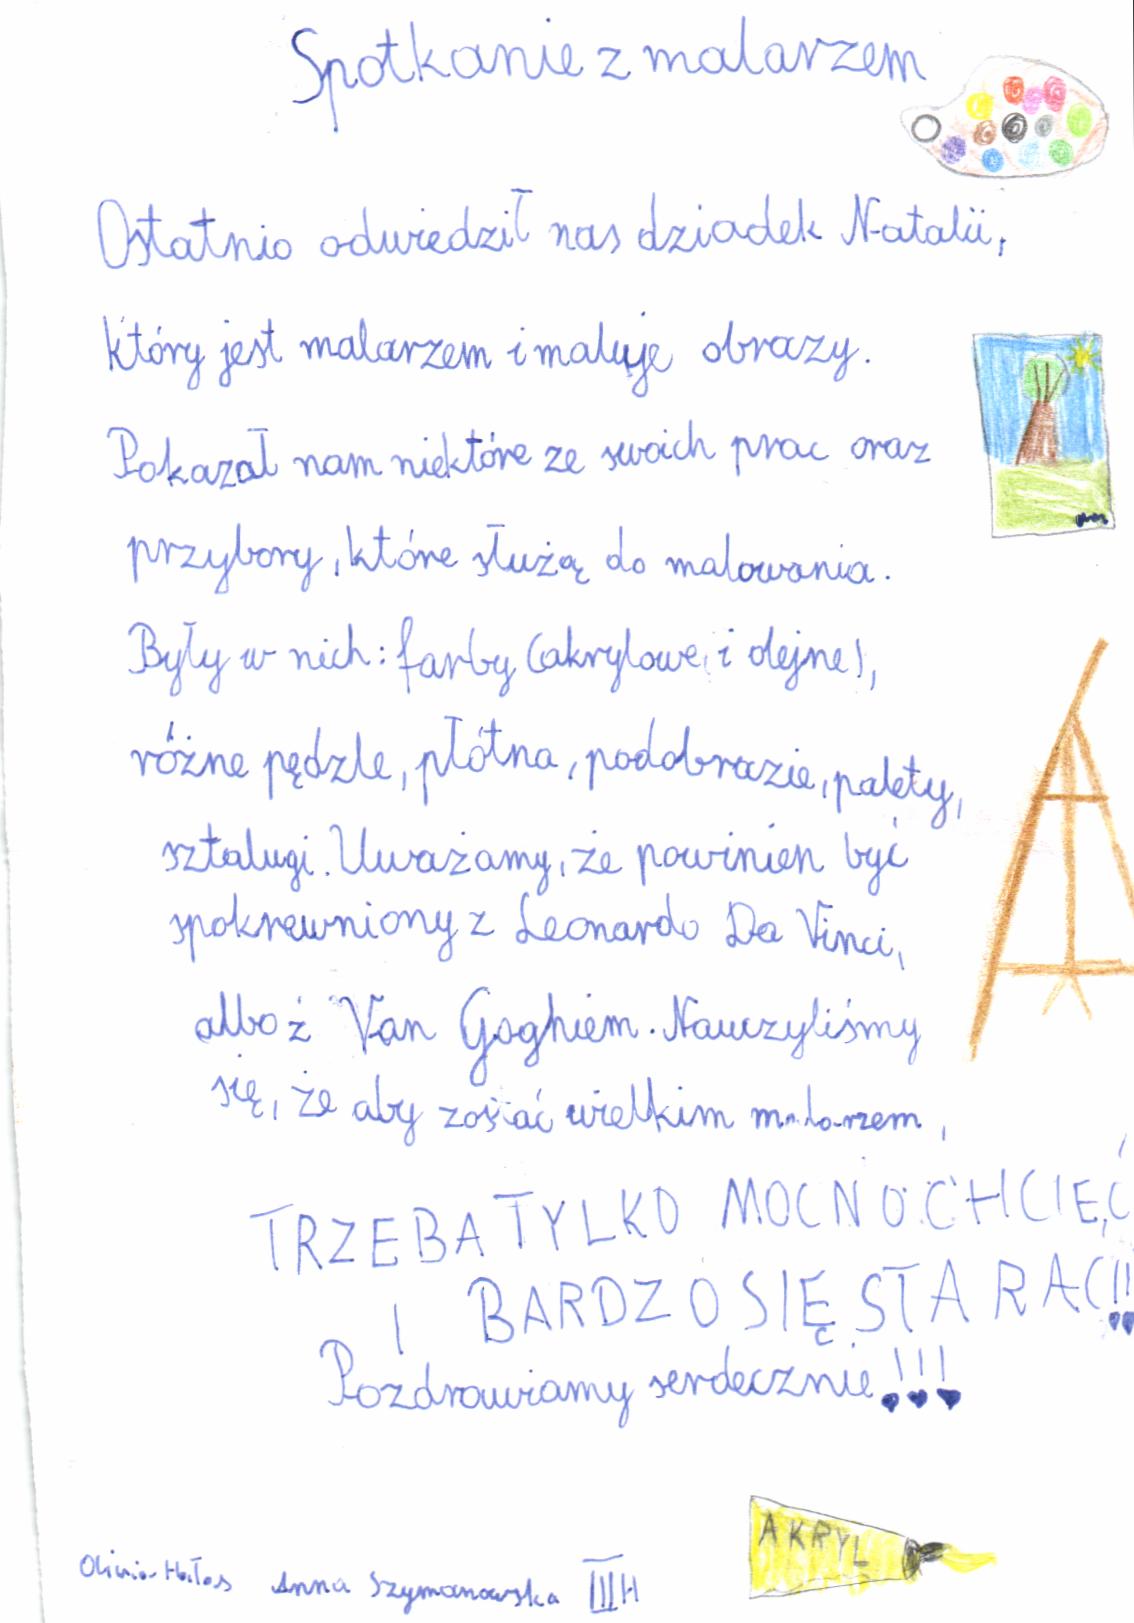 Spotkanie z malarzem
Ostatnio odwiedził nas dziadek Natalii,
który jest malarzem i maluje obrazy.
Pokazał nam niektóre ze swoich prac oraz
przybory, które służą do malowania.
Były w nich: farby (akrylowe i olejne),
różne pędzle, płótna, podobrazie, palety,
sztalugi. Uważamy, że powinien być
spokrewniony z Leonardo Da Vinci,
albo ż Van Goghiem. Nauczyliśmy
się, że aby zostać wielkim malarzem,
TRZEBA TYLKO MOCNO CHCIEĆ
I BARDZO SIĘ STARAĆ!!
Pozdrawiamy serdecznie!!!
AKRYL
Anna Szymanowska III H